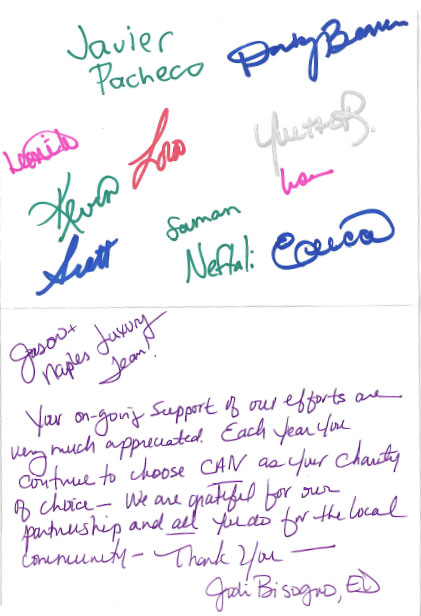 Javier
Pacheco
Yvette B.
Kevin
Scott
Saman
Neftali
Erica
Jason +
Naples Luxury
Team!
Your on-going support of our efforts are
very much appreciated. Each year you
continue to choose CAN as your charity
of choice - We are grateful for our
partnership and all you do for the local
community - Thank You -
Jodi Bisogno, ED